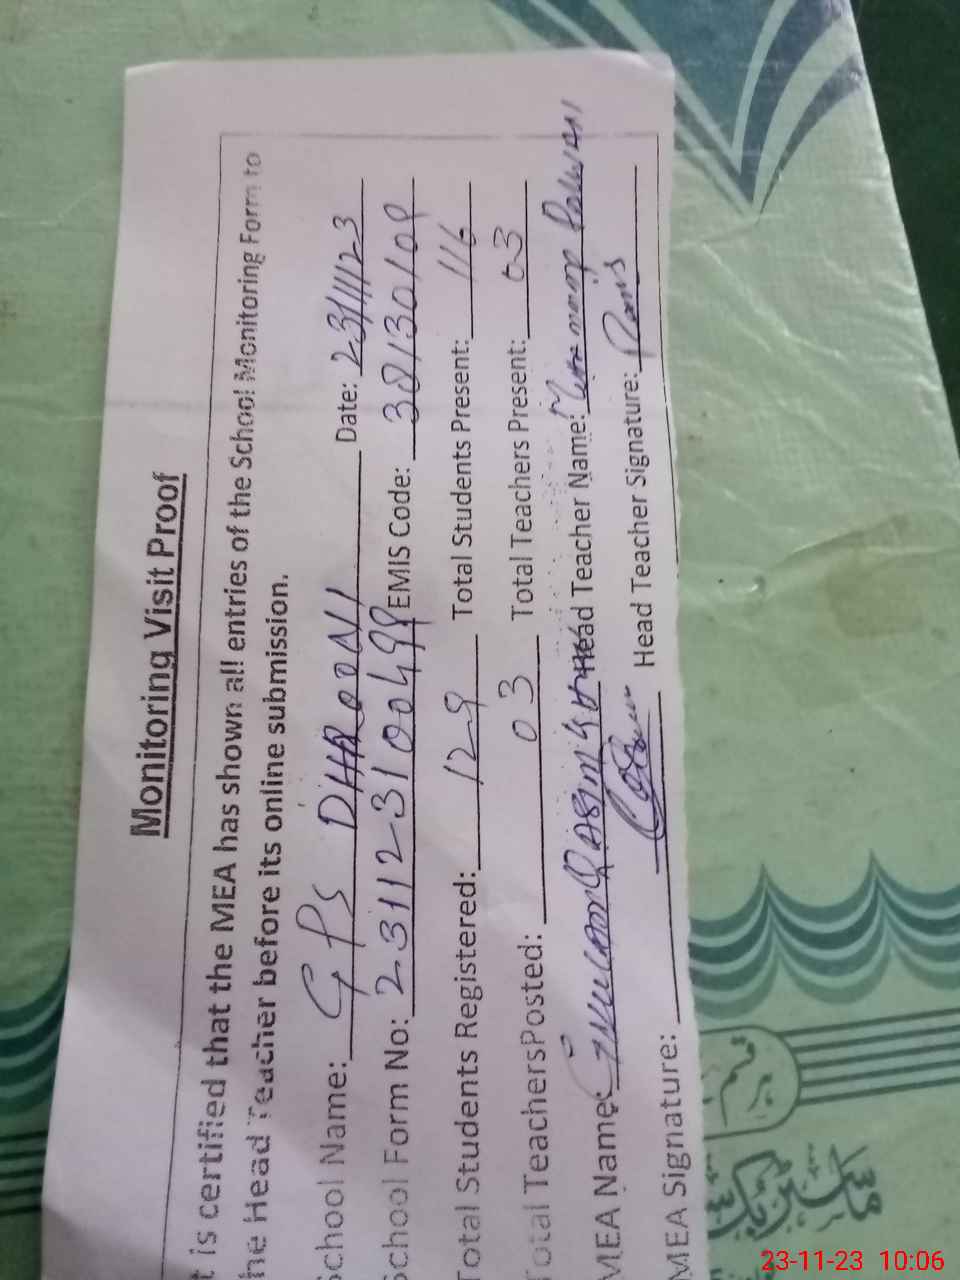 Monitoring Visit Proof
t is certified that the MEA has shown all entries of the School Monitoring Form to
he Head Teacher before its online submission.
School Name: GPS DHROONI Date: 23/11/23
School Form No: 231123100499 EMIS Code: 38130109
Total Students Registered: 129 Total Students Present: 116
Total TeachersPosted: 03 Total Teachers Present: 03
MEA Name: Head Teacher Name:
MEA Signature: Head Teacher Signature:
23-11-23 10:06